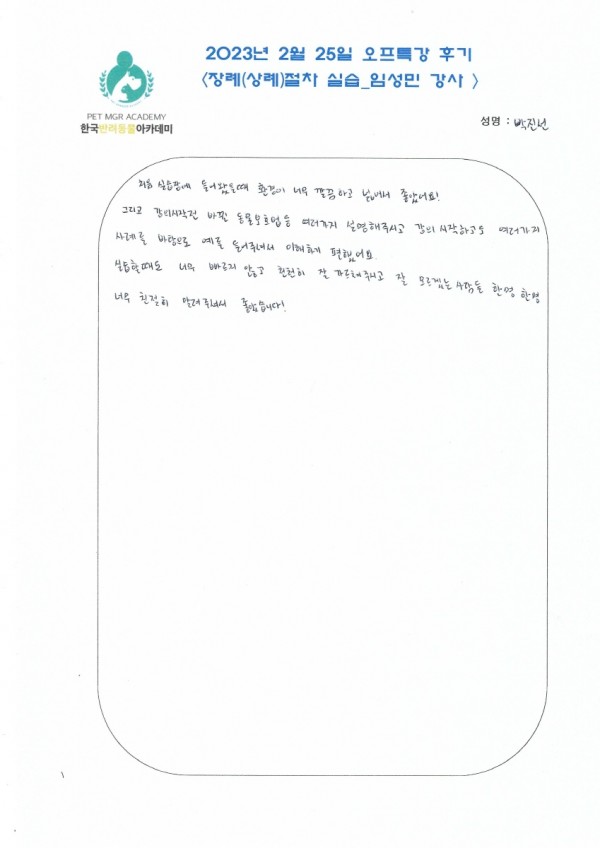 2023년 2월 25일 오프특강 후기
<장례(상례)절차 실습_임성민 강사 >
PET MGR ACADEMY
한국반려동물아카데미
성명 : 박진선
처음 실습장에 들어왔을때 환경이 너무 깔끔하고 넓어서 좋았어요!
그리고 강의시작전 바뀐 동물보호법등 여러가지 설명해주시고 강의 시작하고도 여러가지
사례를 바탕으로 예를 들어주셔서 이해하기 편했어요
실습할때도 너무 빠르지 않고 천천히 잘 가르쳐주시고 잘 모르겠는 사람들 한명 한명
너무 친절히 알려주셔서 좋았습니다!